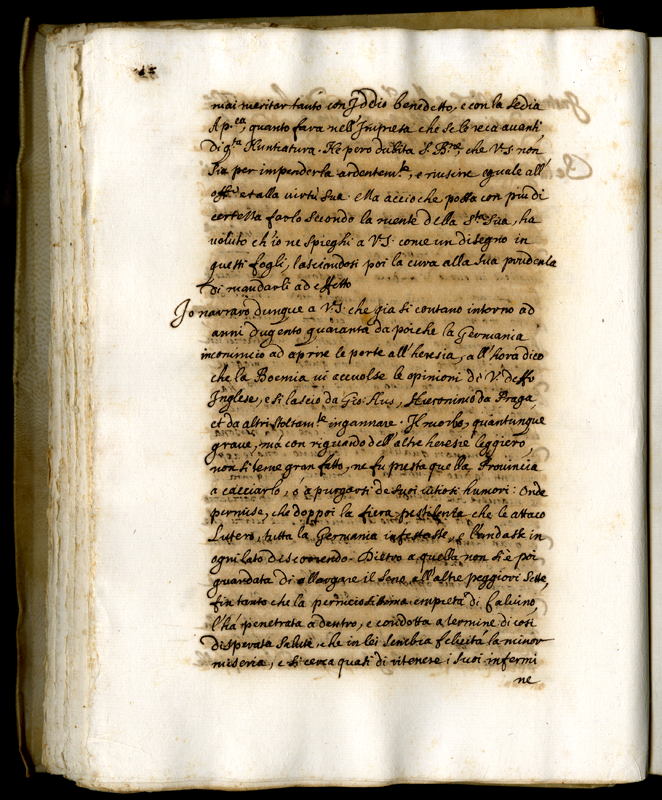 mai meritar tanto con Iddio benedetto, e con la Sedia
Ap.ca, quanto farà nell'Impresa che se le reca avanti
di q.ta Nuntiatura. Ne però dubita S. B.ne, che V.S. non
sia per imprenderla ardentem.te, e riuscire eguale all'
off.o et alla virtù sua. Ma acciò che possa con più di
certezza farlo secondo la mente della S.tà Sua, ha
voluto ch'io ne spieghi a V.S. come un disegno in
questi fogli, lasciandosi poi la cura alla sua prudenza
di mandarli ad effetto
Io narrarò dunque a V.S. che già si contano intorno ad
anni dugento quaranta da poiche la Germania
incominciò ad aprire le porte all'heresia, all'hora dico
che la Boemia vi accolse le opinioni di V.
Inglese, e si lasciò da Gio: Hus, Hieronimo da Praga,
et da altri stoltam.te ingannare. Il morbo, quantunque
grave, ma con riguardo dell'altre heresie leggiero,
non si teme gran fatto, ne fu presta quella Provincia
a cacciarlo, ò a purgarsi de suoi vitiosi humori: Onde
permise, che doppoi la fiera pestilenza che le attacò
Lutero, tutta la Germania infettasse, e l'andasse in
ogni lato discorrendo. Dietro a quella non si è poi
guardata di allargare il seno all'altre peggiori Sette,
fin tanto che la perniciosissima empietà di Calvino,
l'hà penetrata a dentro, e condotta a termine di così
disperata salute, che in lei sembra felicità la minor
miseria, e si cerca quasi di ritenere i suoi infermi
ne